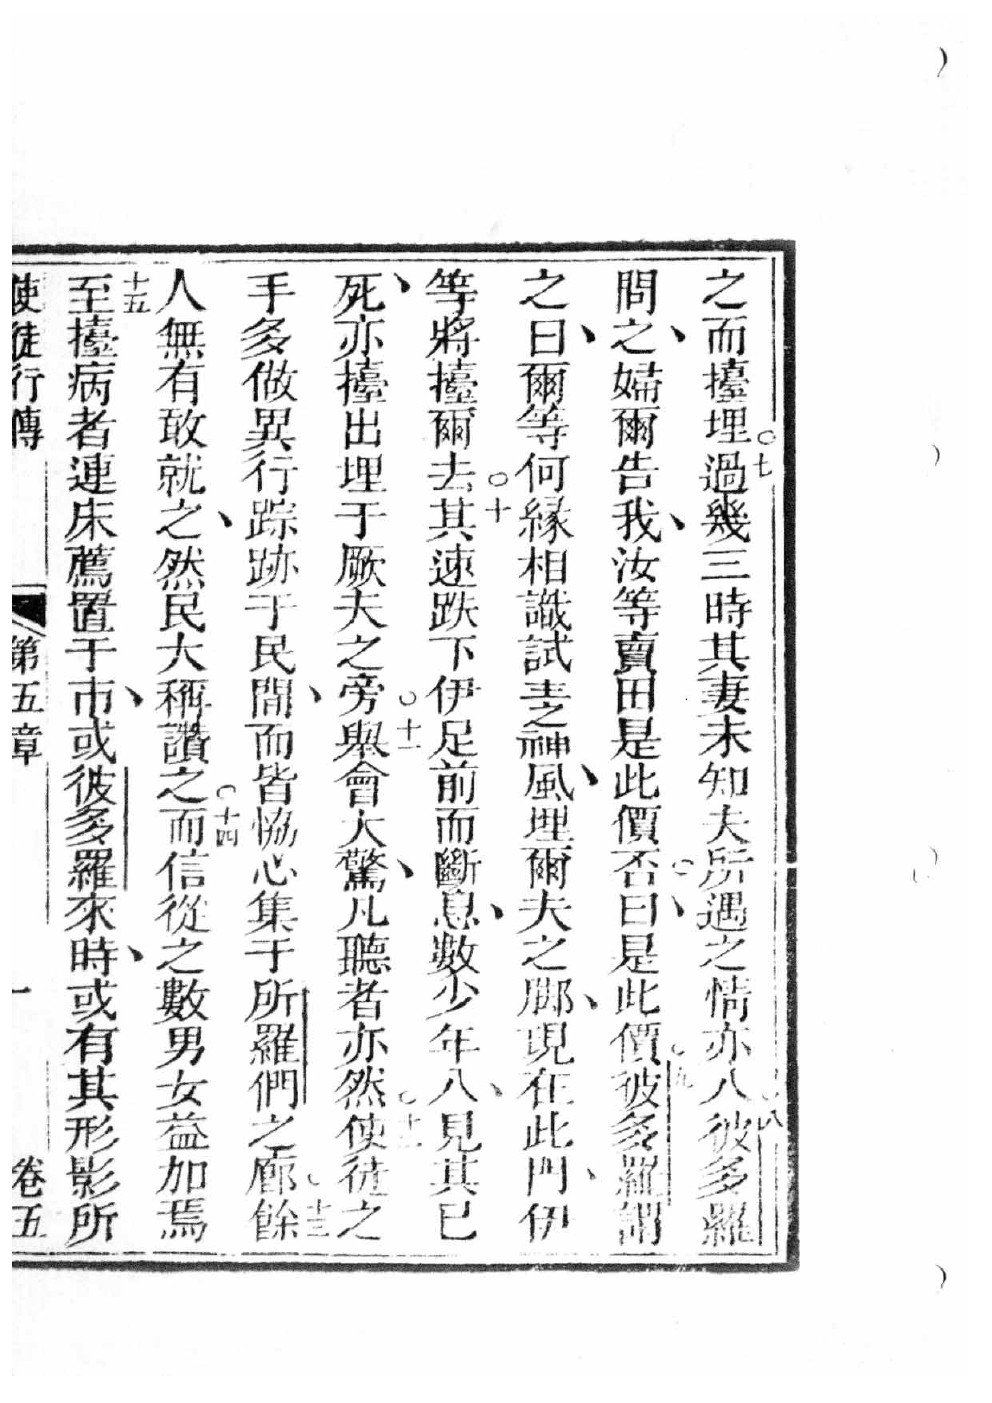 之而擡埋○七過幾三時其妻未知夫所遇之情亦入○八彼多羅
問之、婦爾告我、汝等賣田是此價否○曰、是此價○九彼多羅謂
之曰、爾等何緣相議試主之神風、埋爾夫之腳、現在此門、伊
等將擡爾去○十其速跌下伊足前而斷息、數少年入、見其已
死、亦擡出埋于厥夫之旁○十一舉會大驚、凡聽者亦然○十二使徒之
手多做異行踪跡于民間、而皆恊心集于所羅們之廊○十三餘
人無有敢就之、然民大稱讚之○十四而信從之數男女益加焉
十五至擡病者連床薦置于市、或彼多羅來時、或有其形影所
使徒行傳 第五章 一 卷五